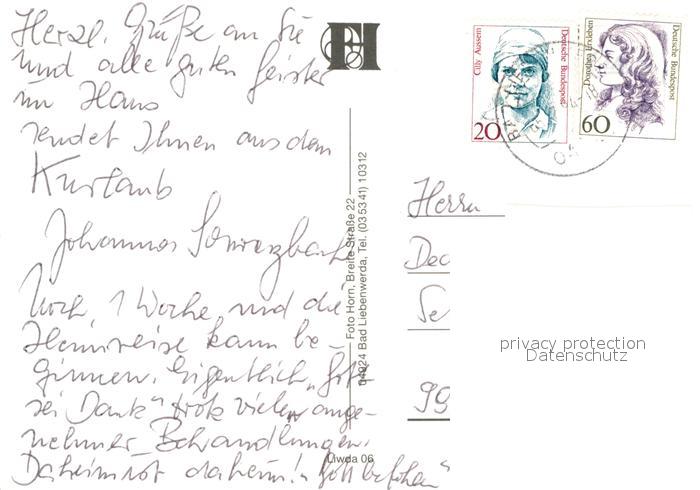 Herzl. Grüße an Sie
und alle guten Geister
im Haus
sendet Ihnen aus dem
Kurlaub
Johannes
Noch 1 Woche und die
Heimreise kann be-
ginnen. Eigentlich „Gott
sei Dank“ trotz vieler ange-
nehmer Behandlungen.
Daheim ist daheim! „Gott befohlen“
FH
Foto Horn, Breite Straße 22
04924 Bad Liebenwerda, Tel. (03 53 41) 1 03 12
Liwda 06
Cilly Aussem
Deutsche Bundespost
20
Dorothea Erxleben
Deutsche Bundespost
60
Herrn
Dec
Se
99
privacy protection
Datenschutz